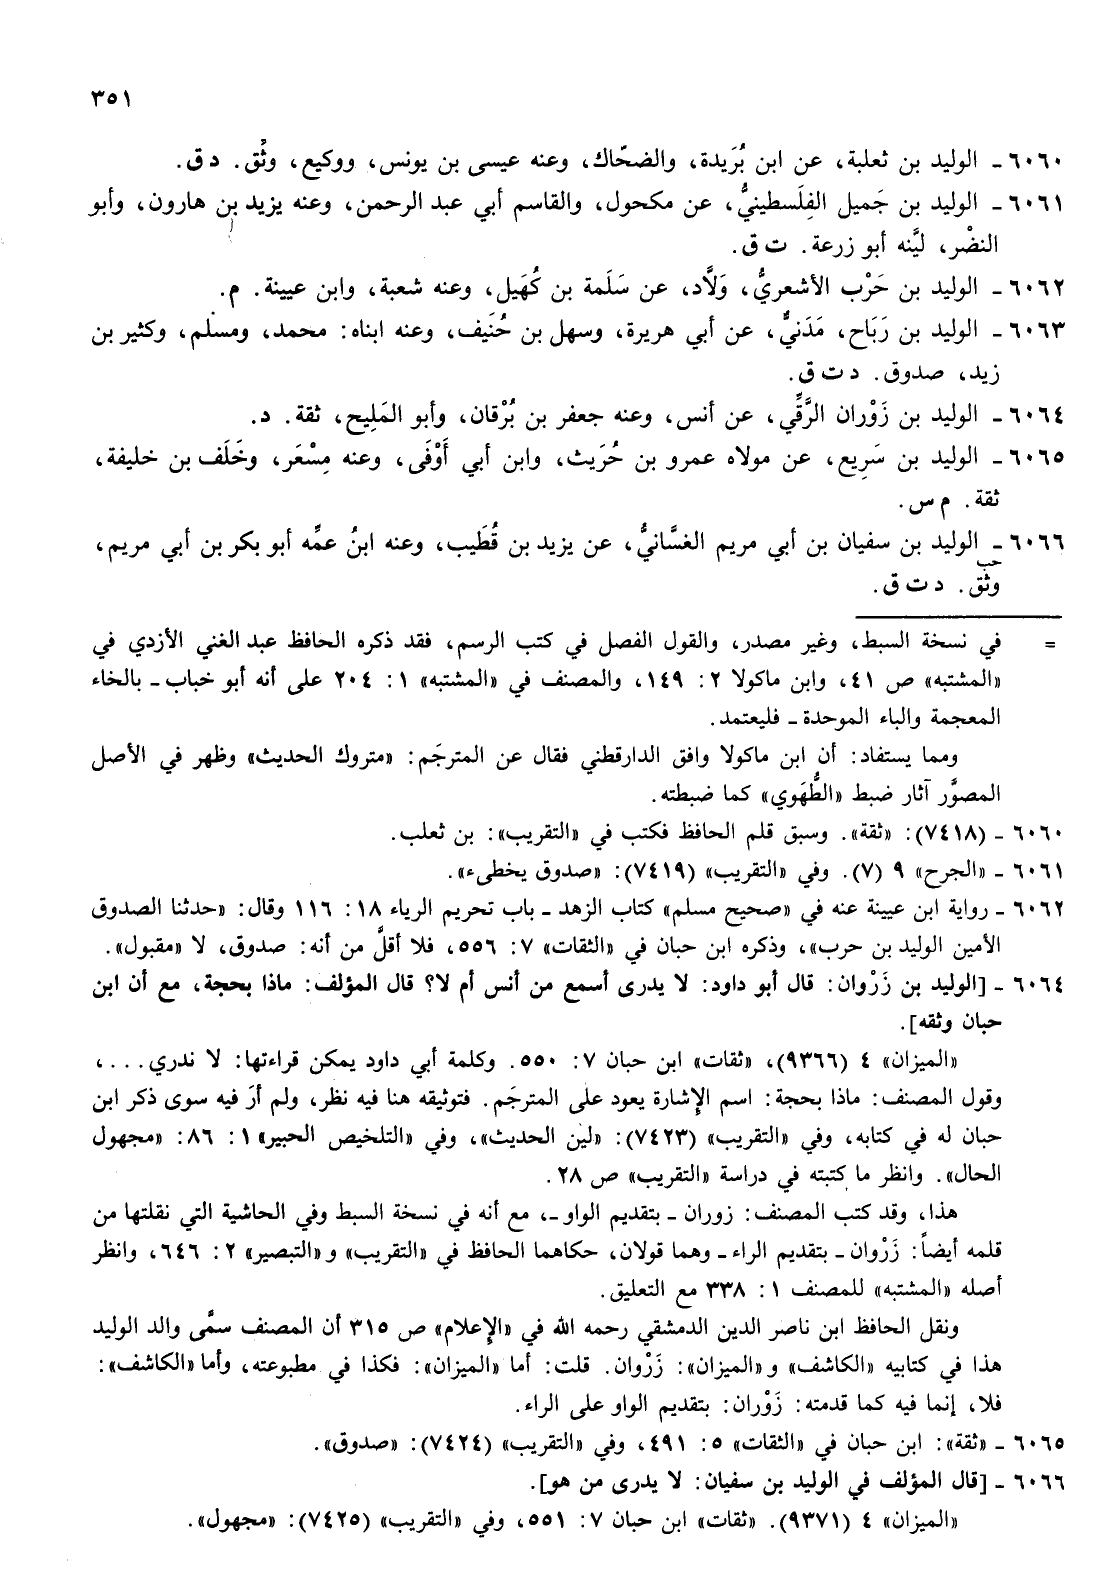 ٣٥١
٦٠٦٠ ـ الوليد بن ثعلبة، عن ابن بُرَيدة، والضحّاك، وعنه عيسى بن يونس، ووكيع، وثِّق. د ق.
٦٠٦١ ـ الوليد بن جَميل الفِلَسطينيُّ، عن مكحول، والقاسم أبي عبد الرحمن، وعنه يزيد بن هارون، وأبو
النضْر، ليَّنه أبو زرعة. ت ق.
٦٠٦٢ ـ الوليد بن حَرْب الأشعريُّ، وَلَّاد، عن سَلَمة بن كُهَيل، وعنه شعبة، وابن عيينة. م.
٦٠٦٣ ـ الوليد بن رَبَاح، مَدَنيٌّ، عن أبي هريرة، وسهل بن حُنَيف، وعنه ابناه: محمد، ومسلم، وكثير بن
زيد، صدوق. د ت ق.
٦٠٦٤ ـ الوليد بن زَوْران الرَّقِّي، عن أنس، وعنه جعفر بن بُرْقان، وأبو المَلِيح، ثقة. د.
٦٠٦٥ ـ الوليد بن سَرِيع، عن مولاه عمرو بن حُرَيث، وابن أبي أَوْفَى، وعنه مِسْعَر، وخَلَف بن خليفة،
ثقة. م س.
٦٠٦٦ ـ الوليد بن سفيان بن أبي مريم الغسَّانيُّ، عن يزيد بن قُطَيب، وعنه ابنُ عمِّه أبو بكر بن أبي مريم،
حب
وثق. د ت ق.
= في نسخة السبط، وغير مصدر، والقول الفصل في كتب الرسم، فقد ذكره الحافظ عبد الغني الأزدي في
«المشتبه» ص ٤١، وابن ماكولا ٢: ١٤٩، والمصنف في «المشتبه» ١: ٢٠٤ على أنه أبو خباب ـ بالخاء
المعجمة والباء الموحدة ـ فليعتمد.
ومما يستفاد: أن ابن ماكولا وافق الدارقطني فقال عن المترجَم: «متروك الحديث» وظهر في الأصل
المصوَّر آثار ضبط «الطُّهَوي» كما ضبطته.
٦٠٦٠ ـ (٧٤١٨): «ثقة». وسبق قلم الحافظ فكتب في «التقريب»: بن ثعلب.
٦٠٦١ ـ «الجرح» ٩ (٧). وفي «التقريب» (٧٤١٩): «صدوق يخطىء».
٦٠٦٢ ـ رواية ابن عيينة عنه في «صحيح مسلم» كتاب الزهد ـ باب تحريم الرياء ١٨: ١١٦ وقال: «حدثنا الصدوق
الأمين الوليد بن حرب»، وذكره ابن حبان في «الثقات» ٧: ٥٥٦، فلا أقلَّ من أنه: صدوق، لا «مقبول».
٦٠٦٤ ـ [الوليد بن زَرْوان: قال أبو داود: لا يدرى أسمع من أنس أم لا؟ قال المؤلف: ماذا بحجة، مع أن ابن
حبان وثقه].
«الميزان» ٤ (٩٣٦٦)، «ثقات» ابن حبان ٧: ٥٥٠. وكلمة أبي داود يمكن قراءتها: لا ندري...،
وقول المصنف: ماذا بحجة: اسم الإشارة يعود على المترجَم. فتوثيقه هنا فيه نظر، ولم أرَ فيه سوى ذكر ابن
حبان له في كتابه، وفي «التقريب» (٧٤٢٣): «لين الحديث»، وفي «التلخيص الحبير» ١: ٨٦: «مجهول
الحال». وانظر ما كتبته في دراسة «التقريب» ص ٢٨.
هذا، وقد كتب المصنف: زوران ـ بتقديم الواو ـ، مع أنه في نسخة السبط وفي الحاشية التي نقلتها من
قلمه أيضاً: زَرْوان ـ بتقديم الراء ـ وهما قولان، حكاهما الحافظ في «التقريب» و«التبصير» ٢: ٦٤٦، وانظر
أصله «المشتبه» للمصنف ١: ٣٣٨ مع التعليق.
ونقل الحافظ ابن ناصر الدين الدمشقي رحمه الله في «الإعلام» ص ٣١٥ أن المصنف سمَّى والد الوليد
هذا في كتابيه «الكاشف» و«الميزان»: زَرْوان. قلت: أما «الميزان»: فكذا في مطبوعته، وأما «الكاشف»:
فلا، إنما فيه كما قدمته: زَوْران: بتقديم الواو على الراء.
٦٠٦٥ ـ «ثقة»: ابن حبان في «الثقات» ٥: ٤٩١، وفي «التقريب» (٧٤٢٤): «صدوق».
٦٠٦٦ ـ [قال المؤلف في الوليد بن سفيان: لا يدرى من هو].
«الميزان» ٤ (٩٣٧١). «ثقات» ابن حبان ٧: ٥٥١، وفي «التقريب» (٧٤٢٥): «مجهول».